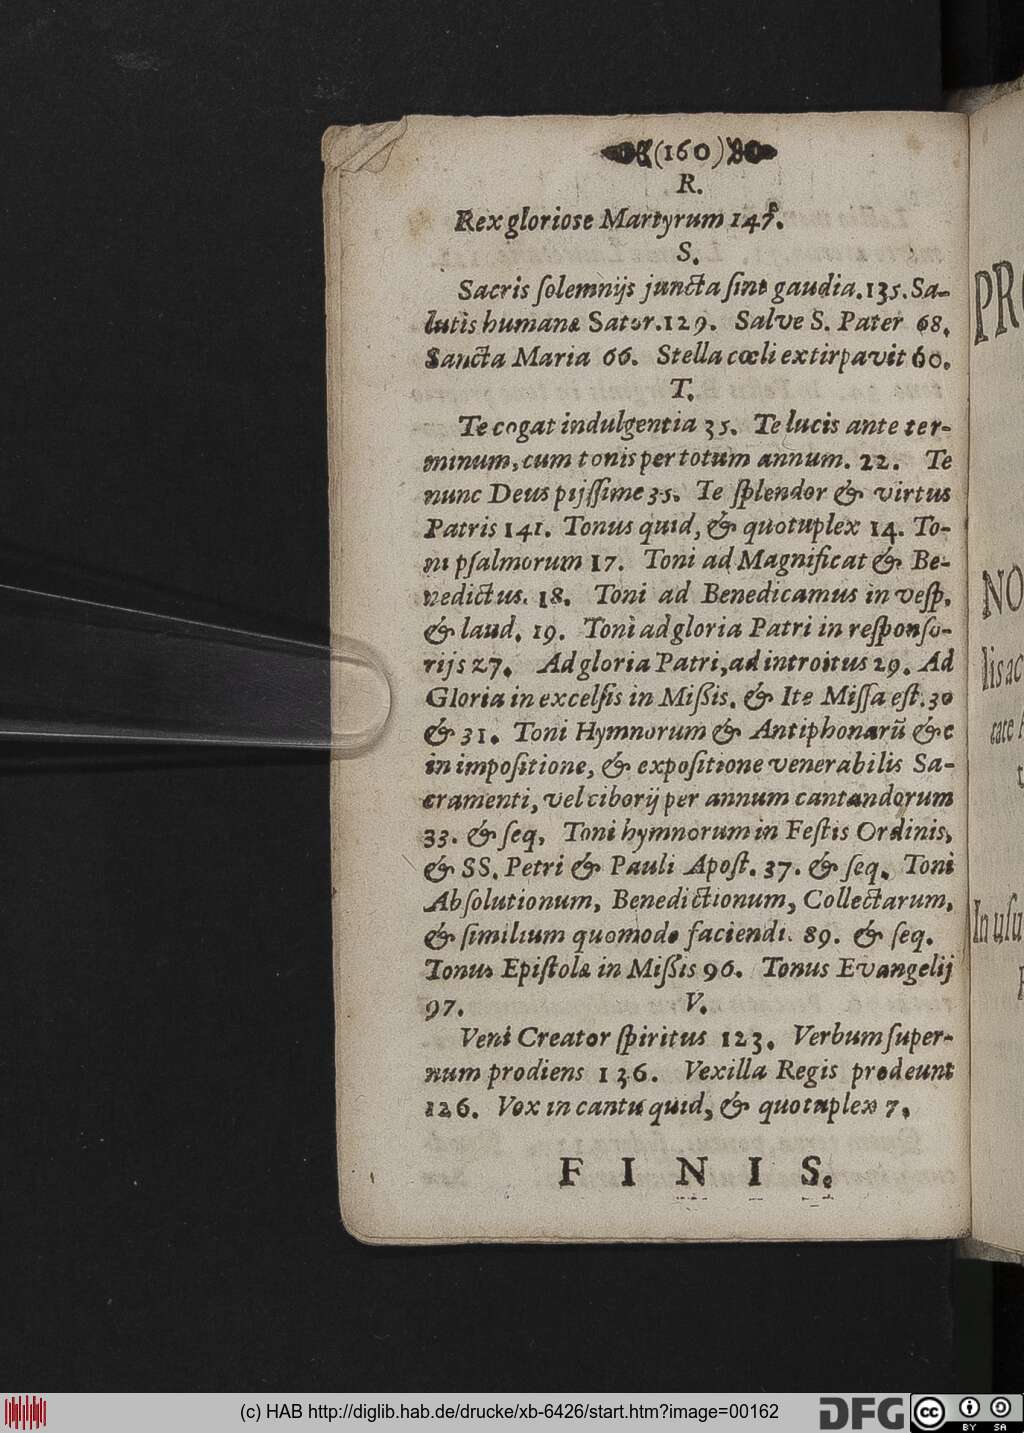 (160)
R.
Rex gloriose Martyrum 147.
S.
Sacris ſolemnijs juncta ſint gaudia. 135. Sa-
lutis humanæ Sator. 129. Salve S. Pater 68.
Sancta Maria 66. Stella cœli extirpavit 60.
T.
Te cogat indulgentia 35. Te lucis ante ter-
minum, cum tonis per totum annum. 22. Te
nunc Deus pijſſime 35. Te ſplendor & virtus
Patris 141. Tonus quid, & quotuplex 14. To-
ni pſalmorum 17. Toni ad Magnificat & Be-
nedictus. 18. Toni ad Benedicamus in veſp.
& laud. 19. Toni ad gloria Patri in reſponſo-
rijs 27. Ad gloria Patri, ad introitus 29. Ad
Gloria in excelſis in Miſsis. & Ite Miſſa eſt. 30
& 31. Toni Hymnorum & Antiphonarū &c
in impoſitione, & expoſitione venerabilis Sa-
cramenti, vel ciborij per annum cantandorum
33. & ſeq. Toni hymnorum in Feſtis Ordinis,
& SS. Petri & Pauli Apoſt. 37. & ſeq. Toni
Abſolutionum, Benedictionum, Collectarum,
& ſimilium quomodo faciendi. 89. & ſeq.
Tonus Epiſtolæ in Miſsis 96. Tonus Evangelij
97. V.
Veni Creator ſpiritus 123. Verbum ſuper-
num prodiens 136. Vexilla Regis prodeunt
126. Vox in cantu quid, & quotuplex 7.
FINIS.
PR
NO
lis ac
care
In uſu
(c) HAB http://diglib.hab.de/drucke/xb-6426/start.htm?image=00162
DFG
cc
BY SA